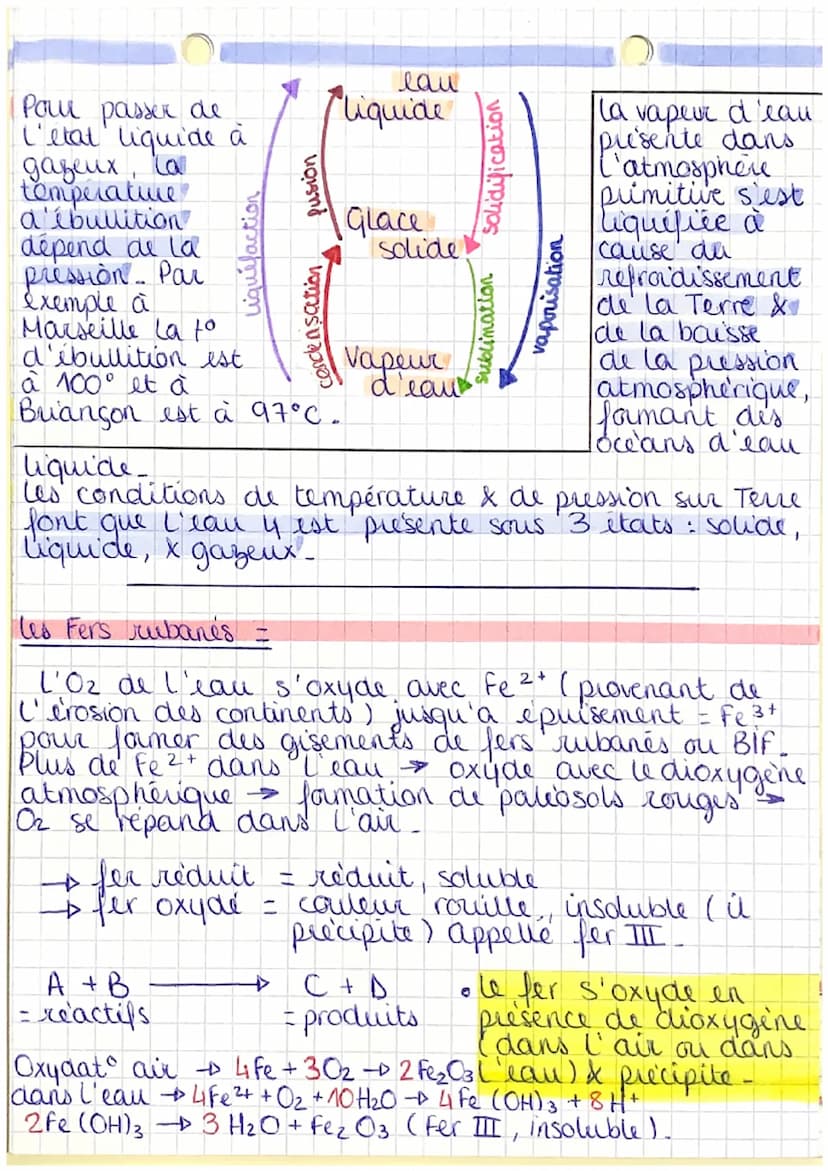 Pour passer de
l'état liquide à
gazeux, la
température
d'ébullition
dépend de la
pression. Par
exemple à
Marseille la t°
d'ébullition est
à 100° et à
Briançon est à 97°C.
liquéfaction
fusion
condensation
eau
liquide
Glace
solide
Vapeur
d'eau
solidification
sublimation
vaporisation
la vapeur d'eau
présente dans
l'atmosphère
primitive s'est
liquéfiée à
cause du
refroidissement
de la Terre &
de la baisse
de la pression
atmosphérique,
formant des
océans d'eau
liquide.
Les conditions de température & de pression sur Terre
font que l'eau y est présente sous 3 états : solide,
liquide, & gazeux.
Les Fers rubanés =
L'O2 de l'eau s'oxyde avec Fe²⁺ (provenant de
l'érosion des continents) jusqu'à épuisement = Fe³⁺
pour former des gisements de fers rubanés ou BIF.
Plus de Fe²⁺ dans l'eau → oxyde avec le dioxygène
atmosphérique → formation de paléosols rouges →
O2 se répand dans l'air.
→ fer réduit = réduit, soluble
→ fer oxydé = couleur rouille, insoluble (il
précipite) appellé fer III.
A + B → C + D
= réactifs = produits
• le fer s'oxyde en
présence de dioxygène
(dans l'air ou dans
l'eau) & précipite.
Oxydat° air → 4Fe + 3O2 → 2Fe2O3
dans l'eau → 4Fe²⁺ + O2 + 10H2O → 4Fe(OH)3 + 8H⁺
2Fe(OH)3 → 3H2O + Fe2O3 (Fer III, insoluble).